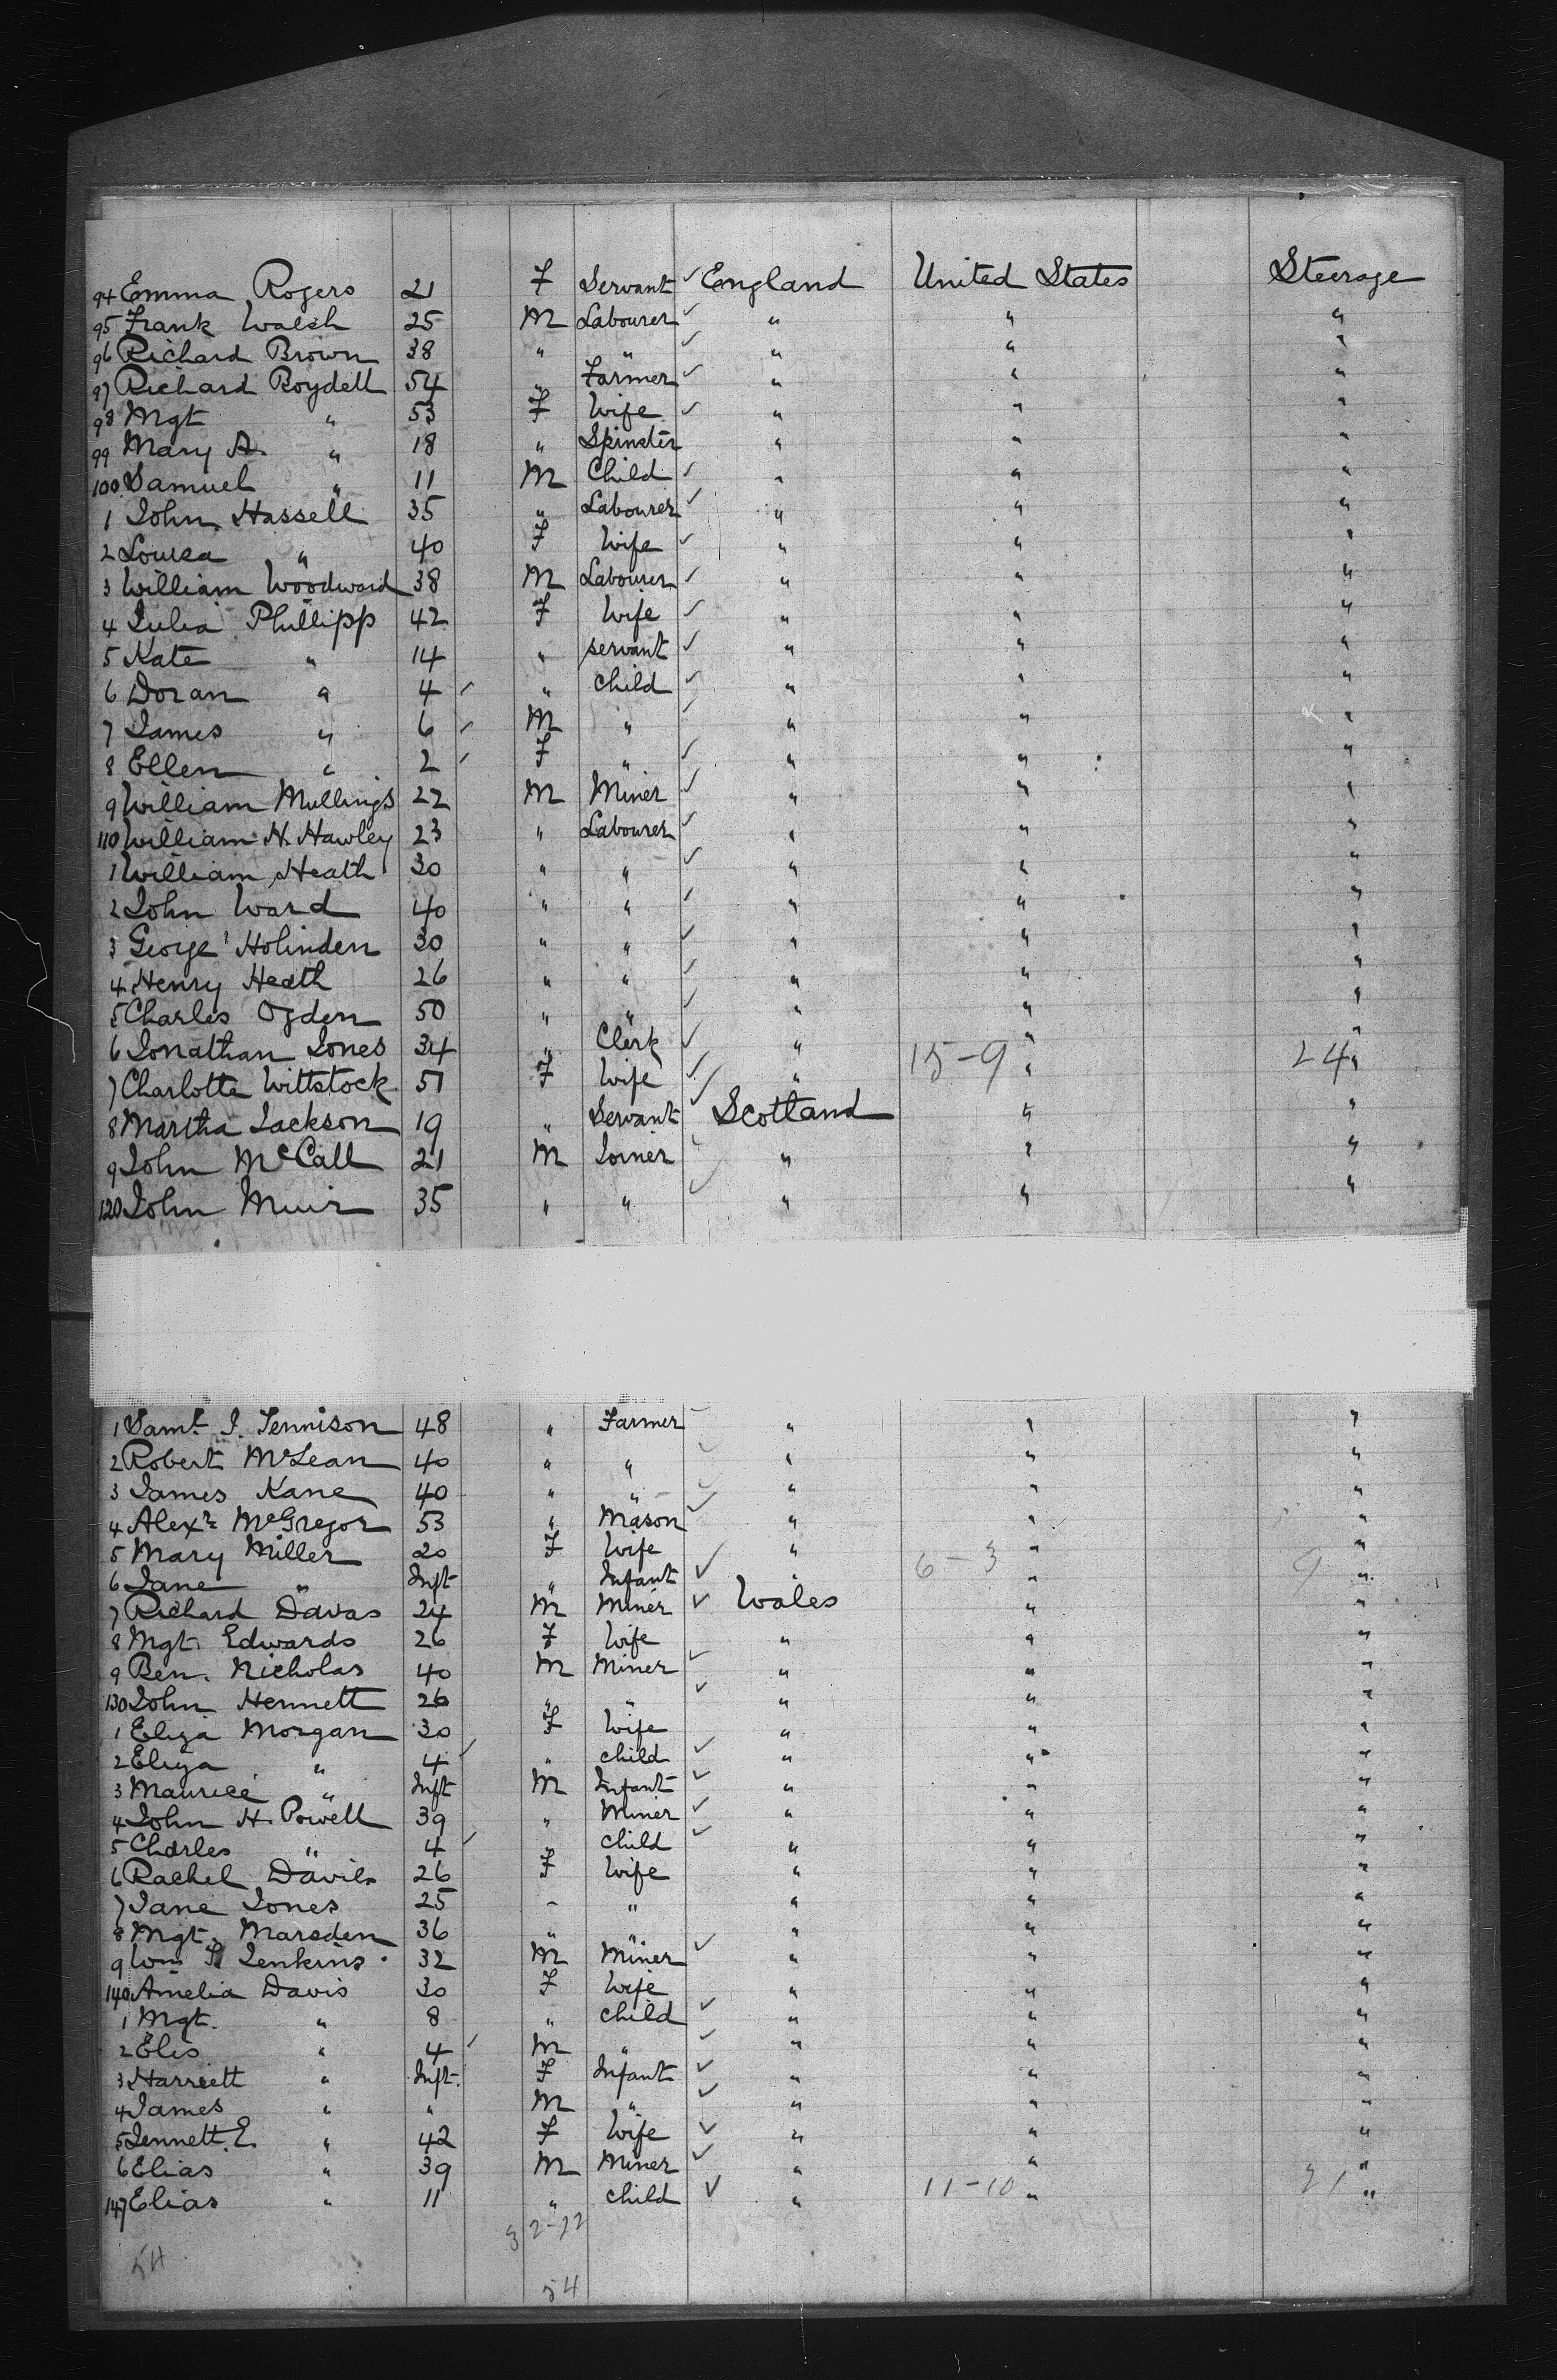 94 Emma Rogers 21 F Servant ✓ England United States Steerage
95 Frank Walsh 25 M Labourer ✓ " " "
96 Richard Brown 38 " " ✓ " " "
97 Richard Boydell 54 " Farmer ✓ " " "
98 Mgt " 53 F Wife ✓ " " "
99 Mary A. " 18 " Spinster " " "
100 Samuel " 11 M Child ✓ " " "
1 John Hassell 35 " Labourer ✓ " " "
2 Louisa " 40 F Wife ✓ " " "
3 William Woodward 38 M Labourer ✓ " " "
4 Julia Phillipp 42 F Wife ✓ " " "
5 Kate " 14 " servant ✓ " " "
6 Doran " 4 ✓ " child ✓ " " "
7 James " 6 ✓ M " ✓ " " "
8 Ellen " 2 ✓ F " ✓ " " "
9 William Mullings 22 M Miner ✓ " " "
110 William H. Hawley 23 " Labourer ✓ " " "
1 William Heath 30 " " ✓ " " "
2 John Ward 40 " " ✓ " " "
3 George Holinden 30 " " ✓ " " "
4 Henry Heath 26 " " ✓ " " "
5 Charles Ogden 50 " " ✓ " " "
6 Jonathan Jones 34 " Clerk ✓ " " "
7 Charlotte Wittstock 51 F Wife ✓ " 15-9 " 24 "
8 Martha Jackson 19 " Servant ✓ Scotland " "
9 John McCall 21 M Joiner ✓ " " "
120 John Muir 35 " " ✓ " " "
1 Saml. J. Tennison 48 " Farmer " " "
2 Robert McLean 40 " " ✓ " " "
3 James Kane 40 " " ✓ " " "
4 Alexr McGregor 53 " Mason ✓ " " "
5 Mary Miller 20 F Wife " 6-3 " "
6 Jane " Inft " Infant ✓ " " 9 "
7 Richard Davas 24 M Miner ✓ Wales " "
8 Mgt. Edwards 26 F Wife " " "
9 Ben. Nicholas 40 M Miner ✓ " " "
130 John Hennett 26 " " ✓ " " "
1 Eliza Morgan 30 F Wife " " "
2 Eliza " 4 ✓ " child ✓ " " "
3 Maurice " Inft M Infant ✓ " " "
4 John H. Powell 39 " Miner ✓ " " "
5 Charles " 4 ✓ " child ✓ " " "
6 Rachel Davis 26 F Wife " " "
7 Jane Jones 25 " " " " "
8 Mgt. Marsden 36 " " " " "
9 Wm Jenkins 32 M Miner ✓ " " "
140 Amelia Davis 30 F Wife " " "
1 Mgt. " 8 " child ✓ " " "
2 Elis " 4 ✓ M " ✓ " " "
3 Harriett " Inft. F Infant ✓ " " "
4 James " " M " ✓ " " "
5 Jennett E. " 42 F Wife ✓ " " "
6 Elias " 39 M Miner ✓ " " "
147 Elias " 11 " child ✓ " 11-10 " 21 "
32-22
54
54